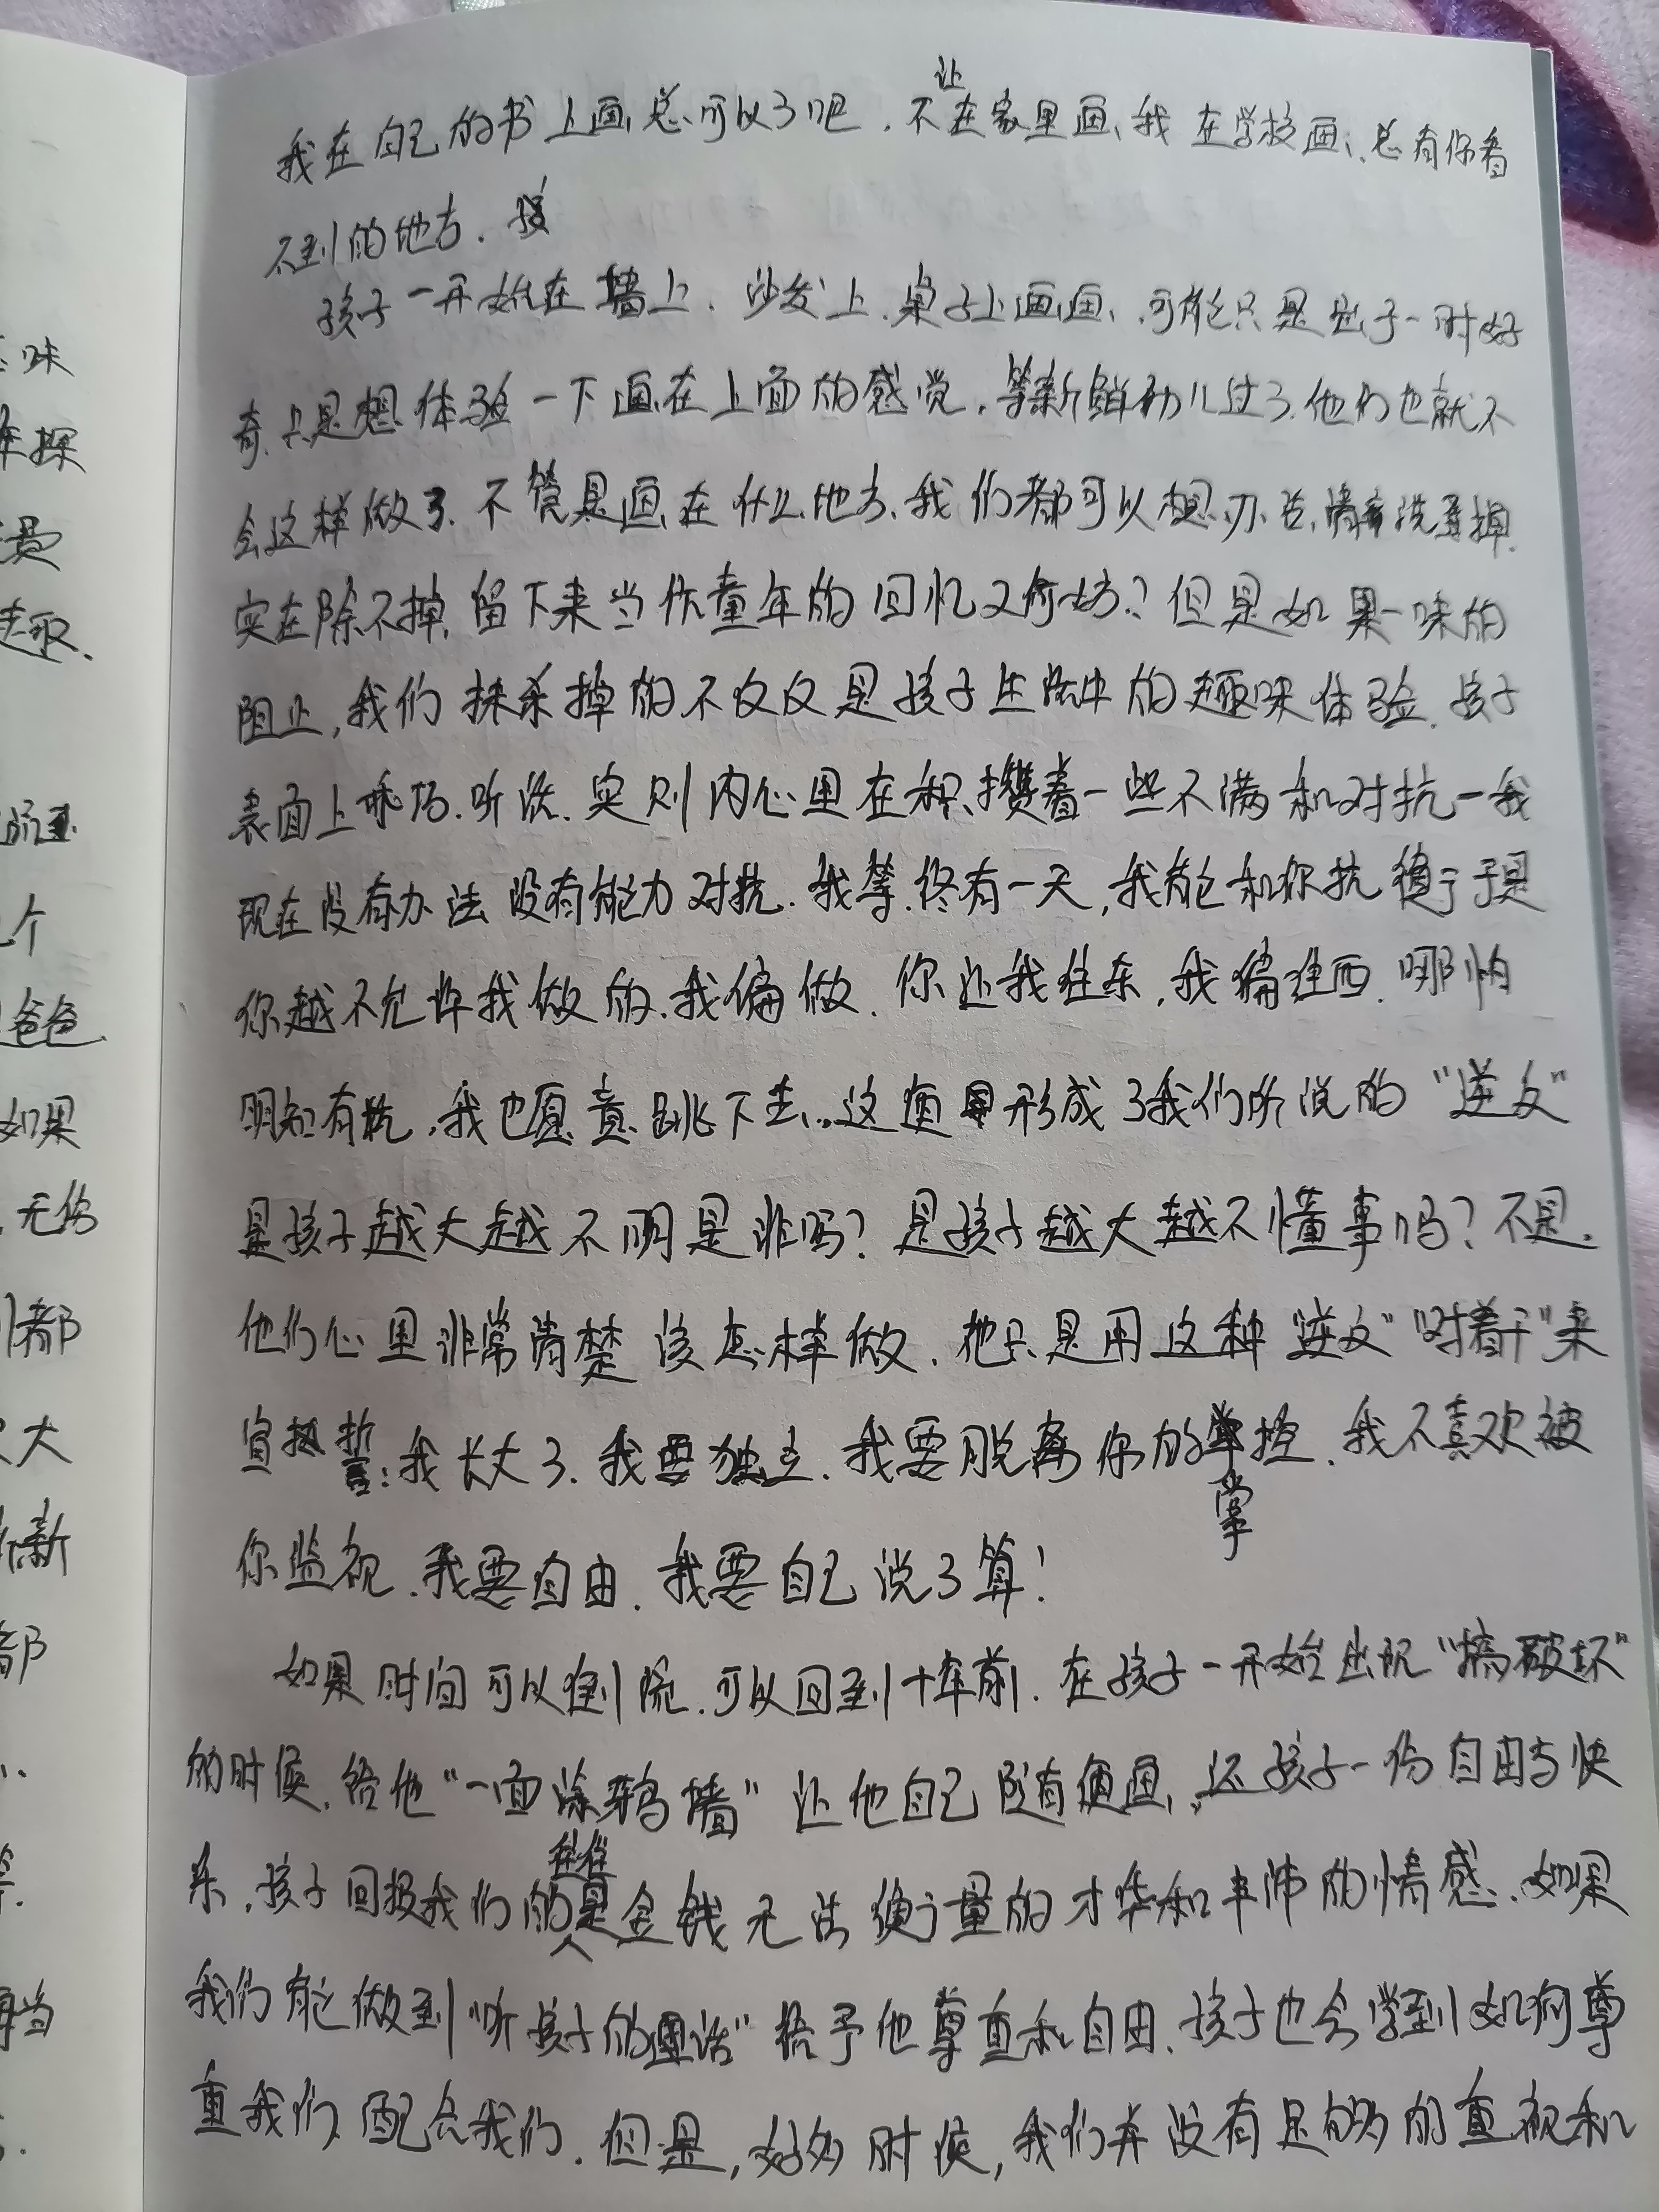 我在自己的书上画总可以了吧，不让在家里画，我在学校画，总有你看
不到的地方.
孩子一开始在墙上.沙发上.桌子上画画，可能只是出于一时好
奇.只是想体验一下画在上面的感觉，等新鲜劲儿过了.他们也就不
会这样做了.不管是画在什么地方，我们都可以想办法清洗掉.
实在除不掉，留下来当作童年的回忆又何妨？但是如果一味的
阻止，我们抹杀掉的不仅仅是孩子生活中的趣味体验.孩子
表面上乖巧.听话.实则内心里在积攒着一些不满和对抗—我
现在没有办法没有能力对抗.我等.终有一天，我能和你抗衡于是
你越不允许我做的.我偏做.你让我往东，我偏往西.哪怕
明知有坑，我也愿意跳下去...这便形成了我们所说的“逆反”
是孩子越大越不明是非吗？是孩子越大越不懂事吗？不是.
他们心里非常清楚该怎样做.他只是用这种“逆反”“对着干”来
宣誓：我长大了.我要独立.我要脱离你的掌控.我不喜欢被
你监视.我要自由.我要自己说了算！
如果时间可以倒流.可以回到十年前.在孩子一开始出现“搞破坏”
的时候.给他“一面涂鸦墙”让他自己随有便画，还孩子一份自由与快
乐，孩子回报我们的往往是金钱无法衡量的才华和丰沛的情感.如果
我们能做到“听孩子的画话”给予他尊重和自由.孩子也会学到如何尊
重我们.配合我们.但是，好多时候，我们并没有足够的重视和
味
探
趣.
个
爸爸.
如果
无伤
都
大
新
部
当